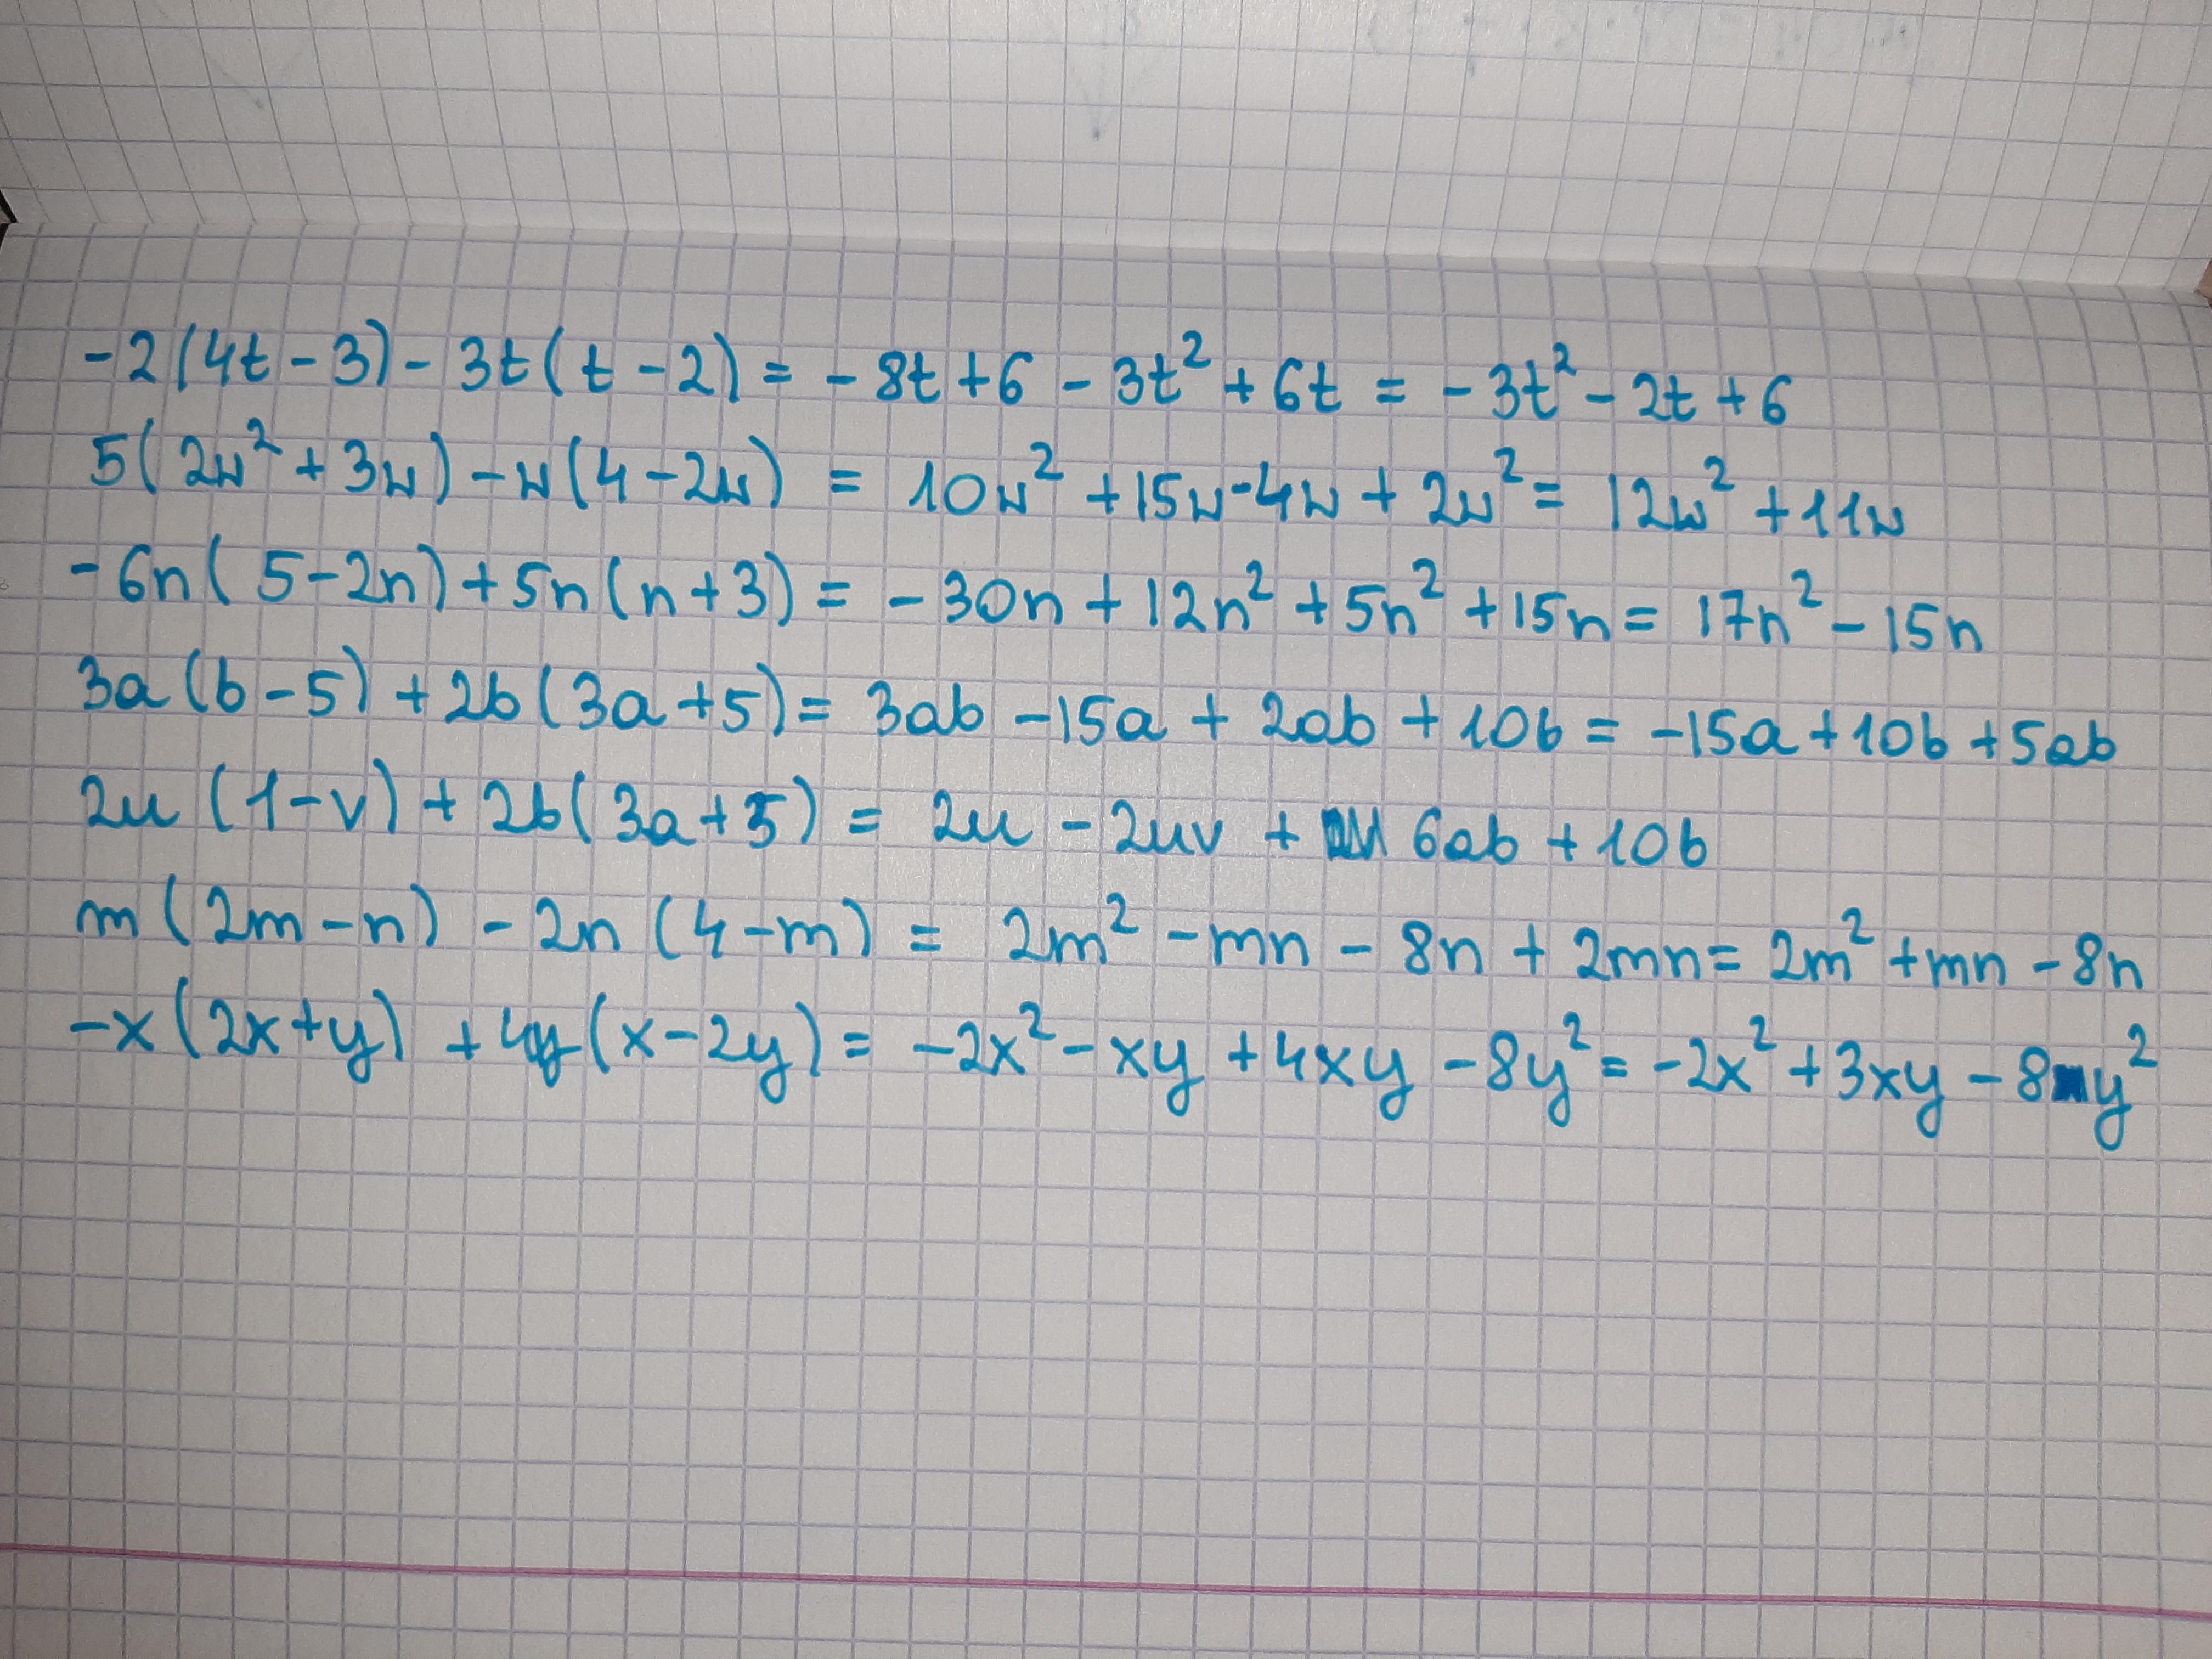 -2(4t-3)-3t(t-2) = -8t+6-3t²+6t = -3t²-2t+6
5(2w²+3w)-w(4-2w) = 10w²+15w-4w+2w² = 12w²+11w
-6n(5-2n)+5n(n+3) = -30n+12n²+5n²+15n = 17n²-15n
3a(b-5)+2b(3a+5) = 3ab-15a+2ab+10b = -15a+10b+5ab
2u(1-v)+2b(3a+5) = 2u-2uv+6ab+10b
m(2m-n)-2n(4-m) = 2m²-mn-8n+2mn = 2m²+mn-8n
-x(2x+y)+4y(x-2y) = -2x²-xy+4xy-8y² = -2x²+3xy-8y²